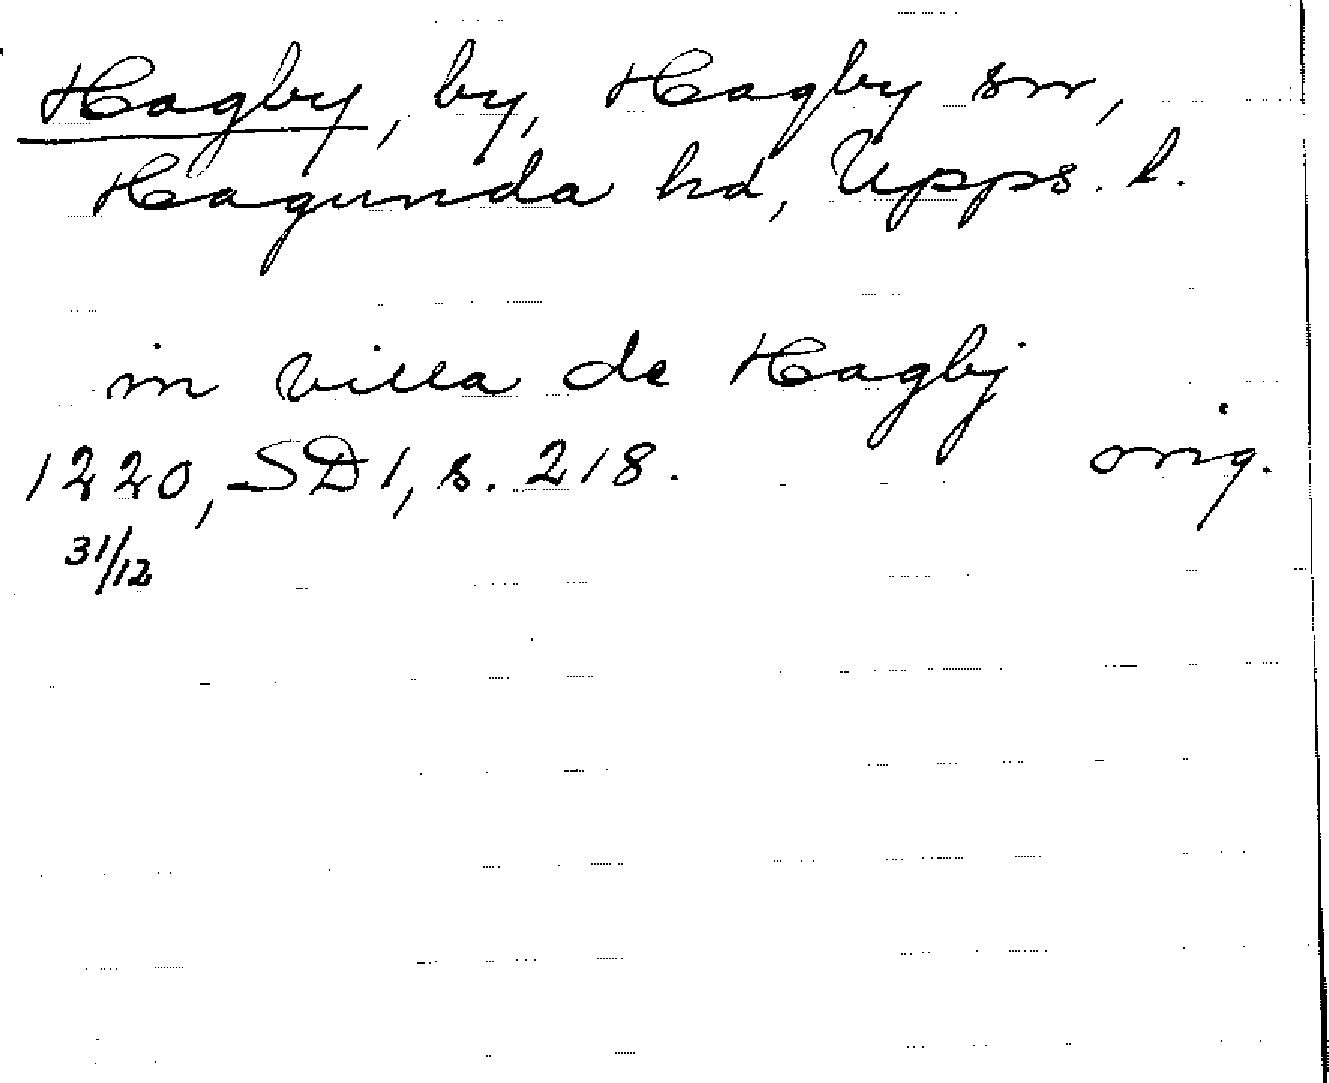 Hagby, by, Hagby sn,
Hagunda hd, Upps. l.
in villa de Hagbj
1220, SD 1, s. 218. orig.
31/12